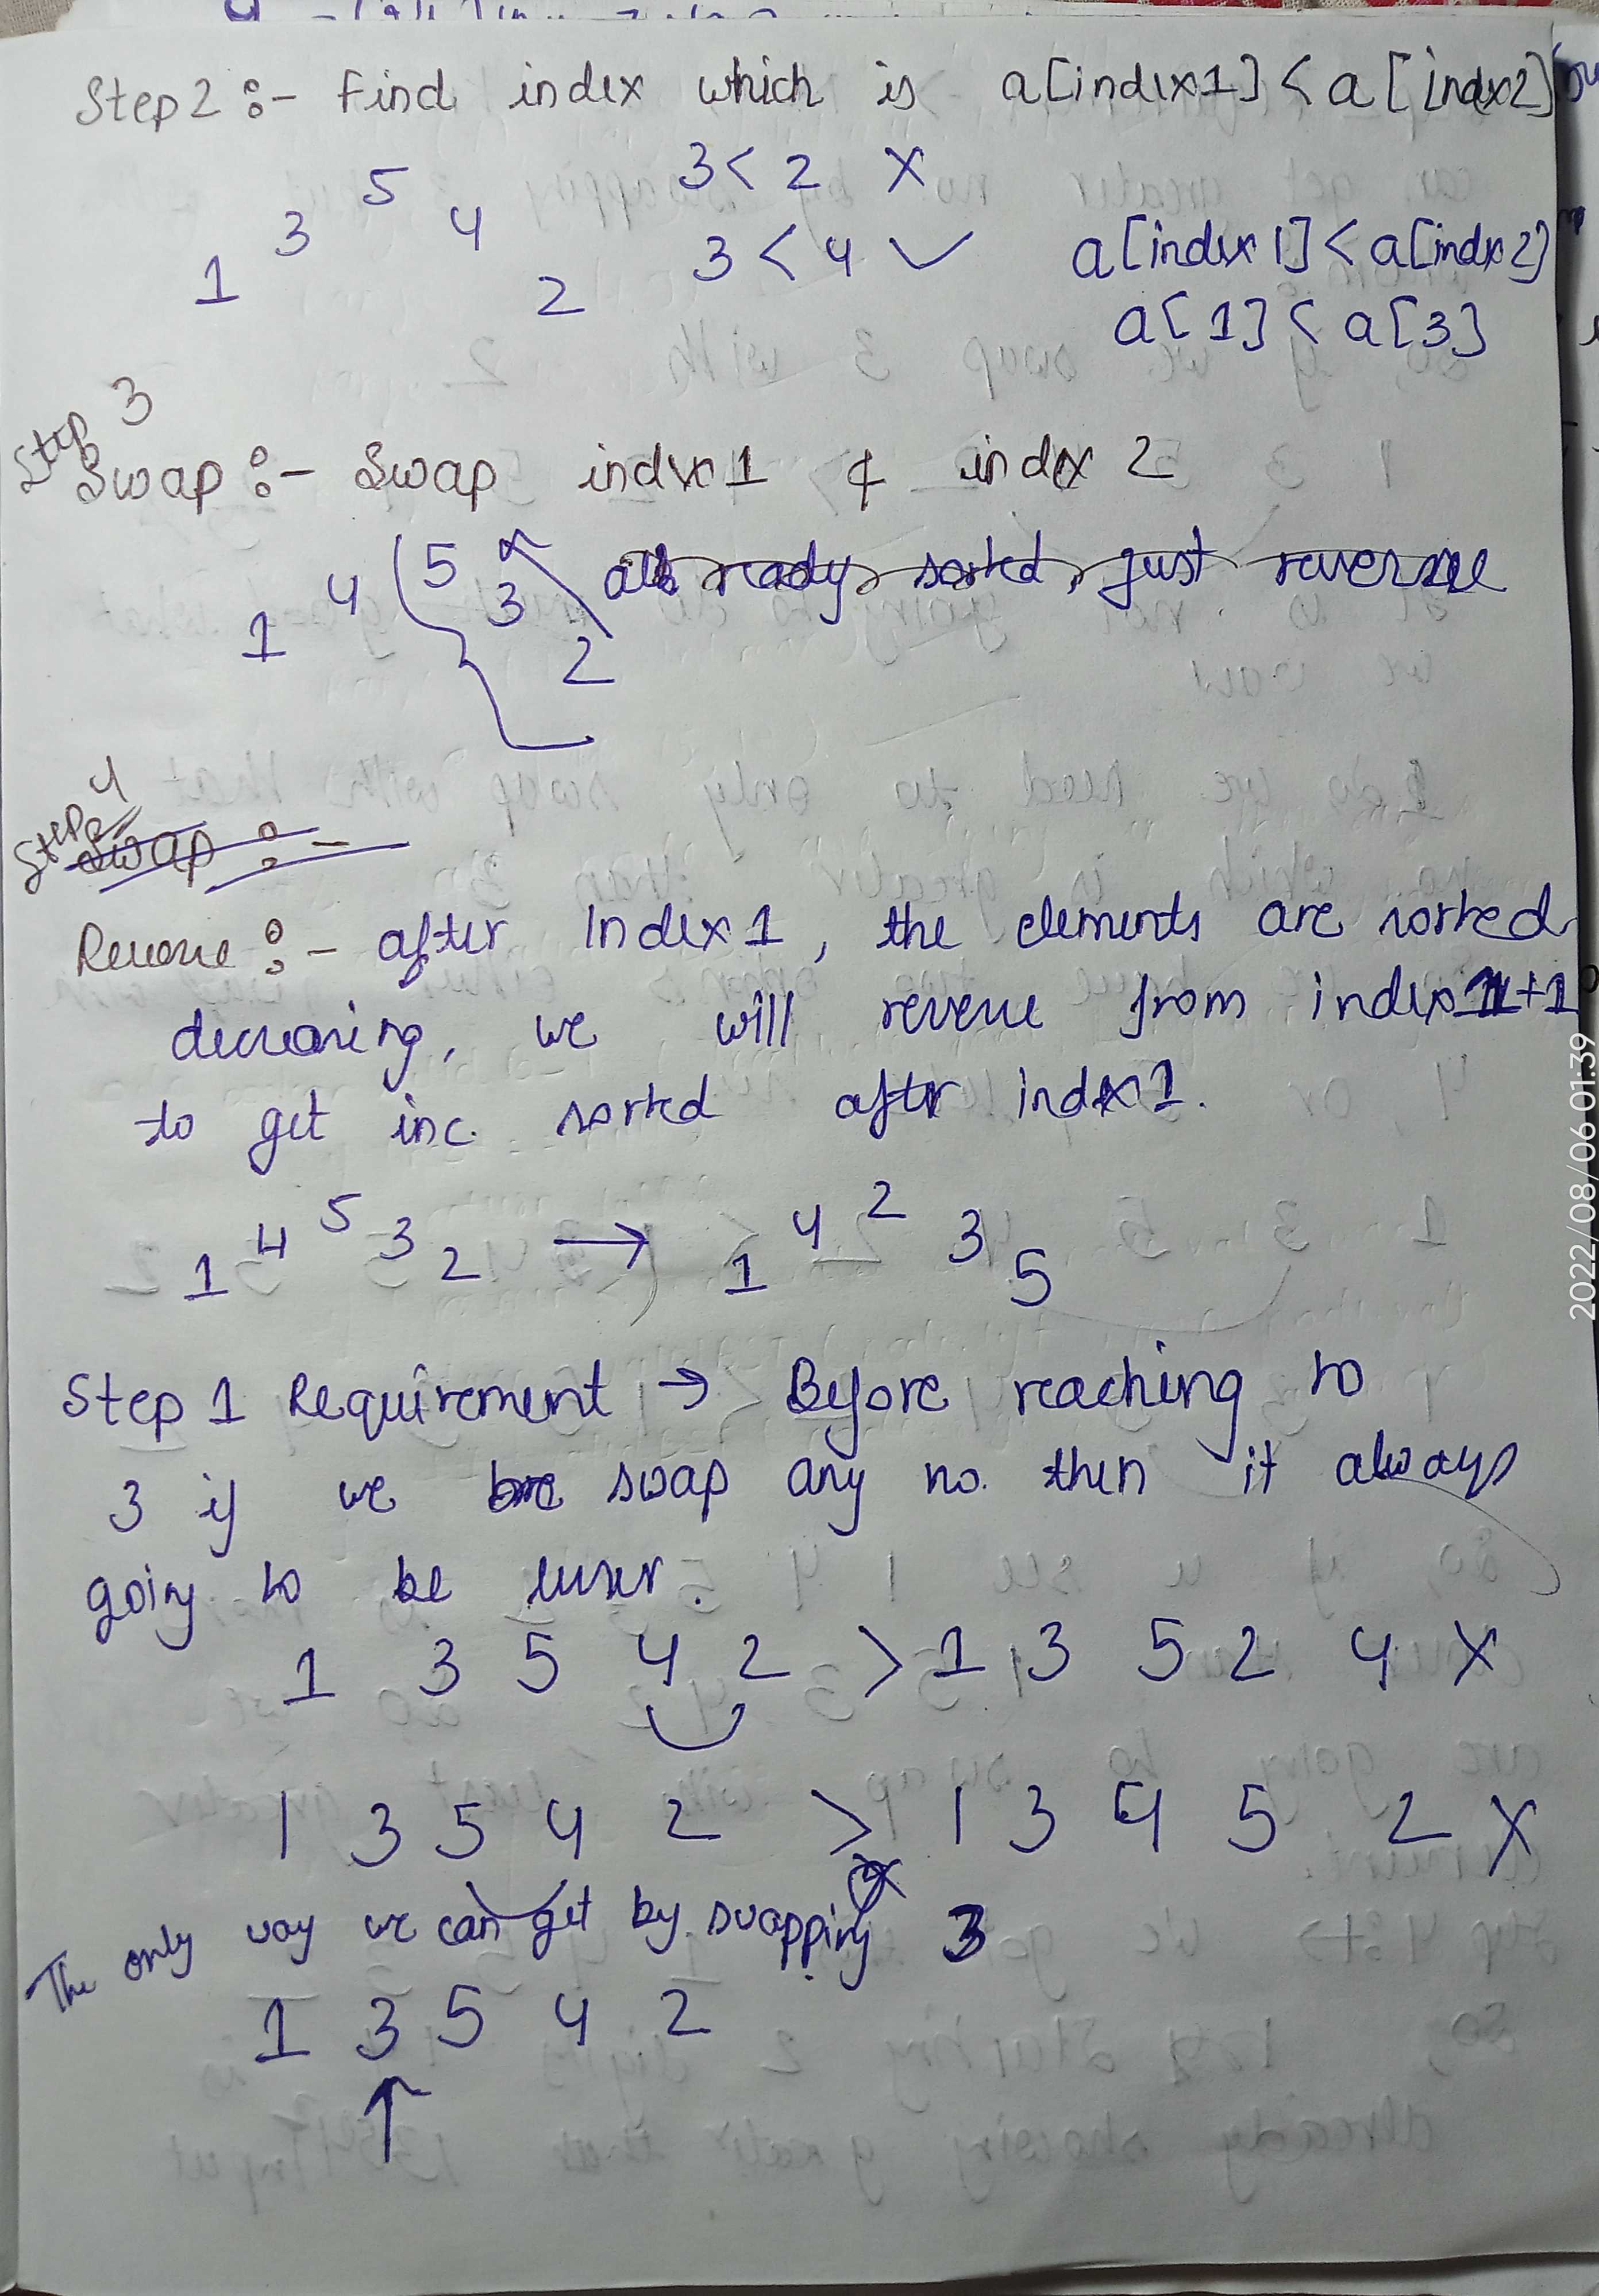 Step 2 :- Find index which is a[index1] < a[indx2]
3 < 2 X
1 3 5 4 2
3 < 4 ✓ a[index 1] < a[indx 2]
a[1] < a[3]
Step 3
Swap :- Swap index 1 & index 2
1 4 5 3 2 already sorted, just reverse
Step 4
Swap :-
Reverse :- after Index 1, the elements are sorted
decreasing, we will reverse from index1+1
to get inc. sorted after index 1.
1 4 5 3 2 → 1 4 2 3 5
Step 1 Requirement → Before reaching to
3 if we swap any no. then it always
going to be lesser.
1 3 5 4 2 > 1 3 5 2 4 X
1 3 5 4 2 > 1 3 4 5 2 X
The only way we can get by swapping 3
1 3 5 4 2
↑
2022/08/06 01:39